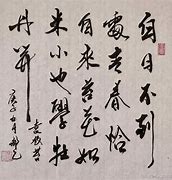 白日不到
處青春恰
自來苔花如
米小也學牡
丹開
袁枚苔